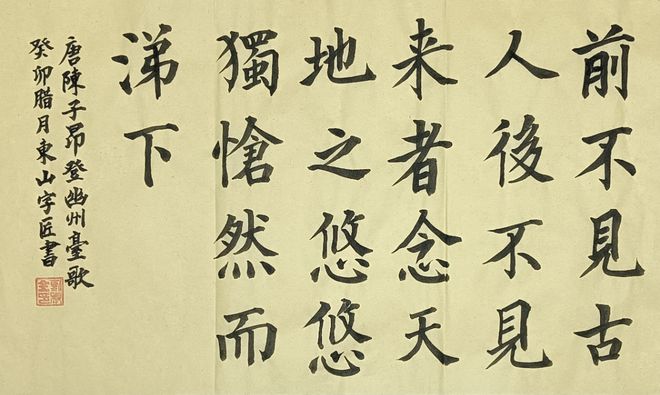 前不見古
人後不見
来者念天
地之悠悠
獨愴然而
涕下
唐陳子昂登幽州臺歌
癸卯腊月東山字匠書